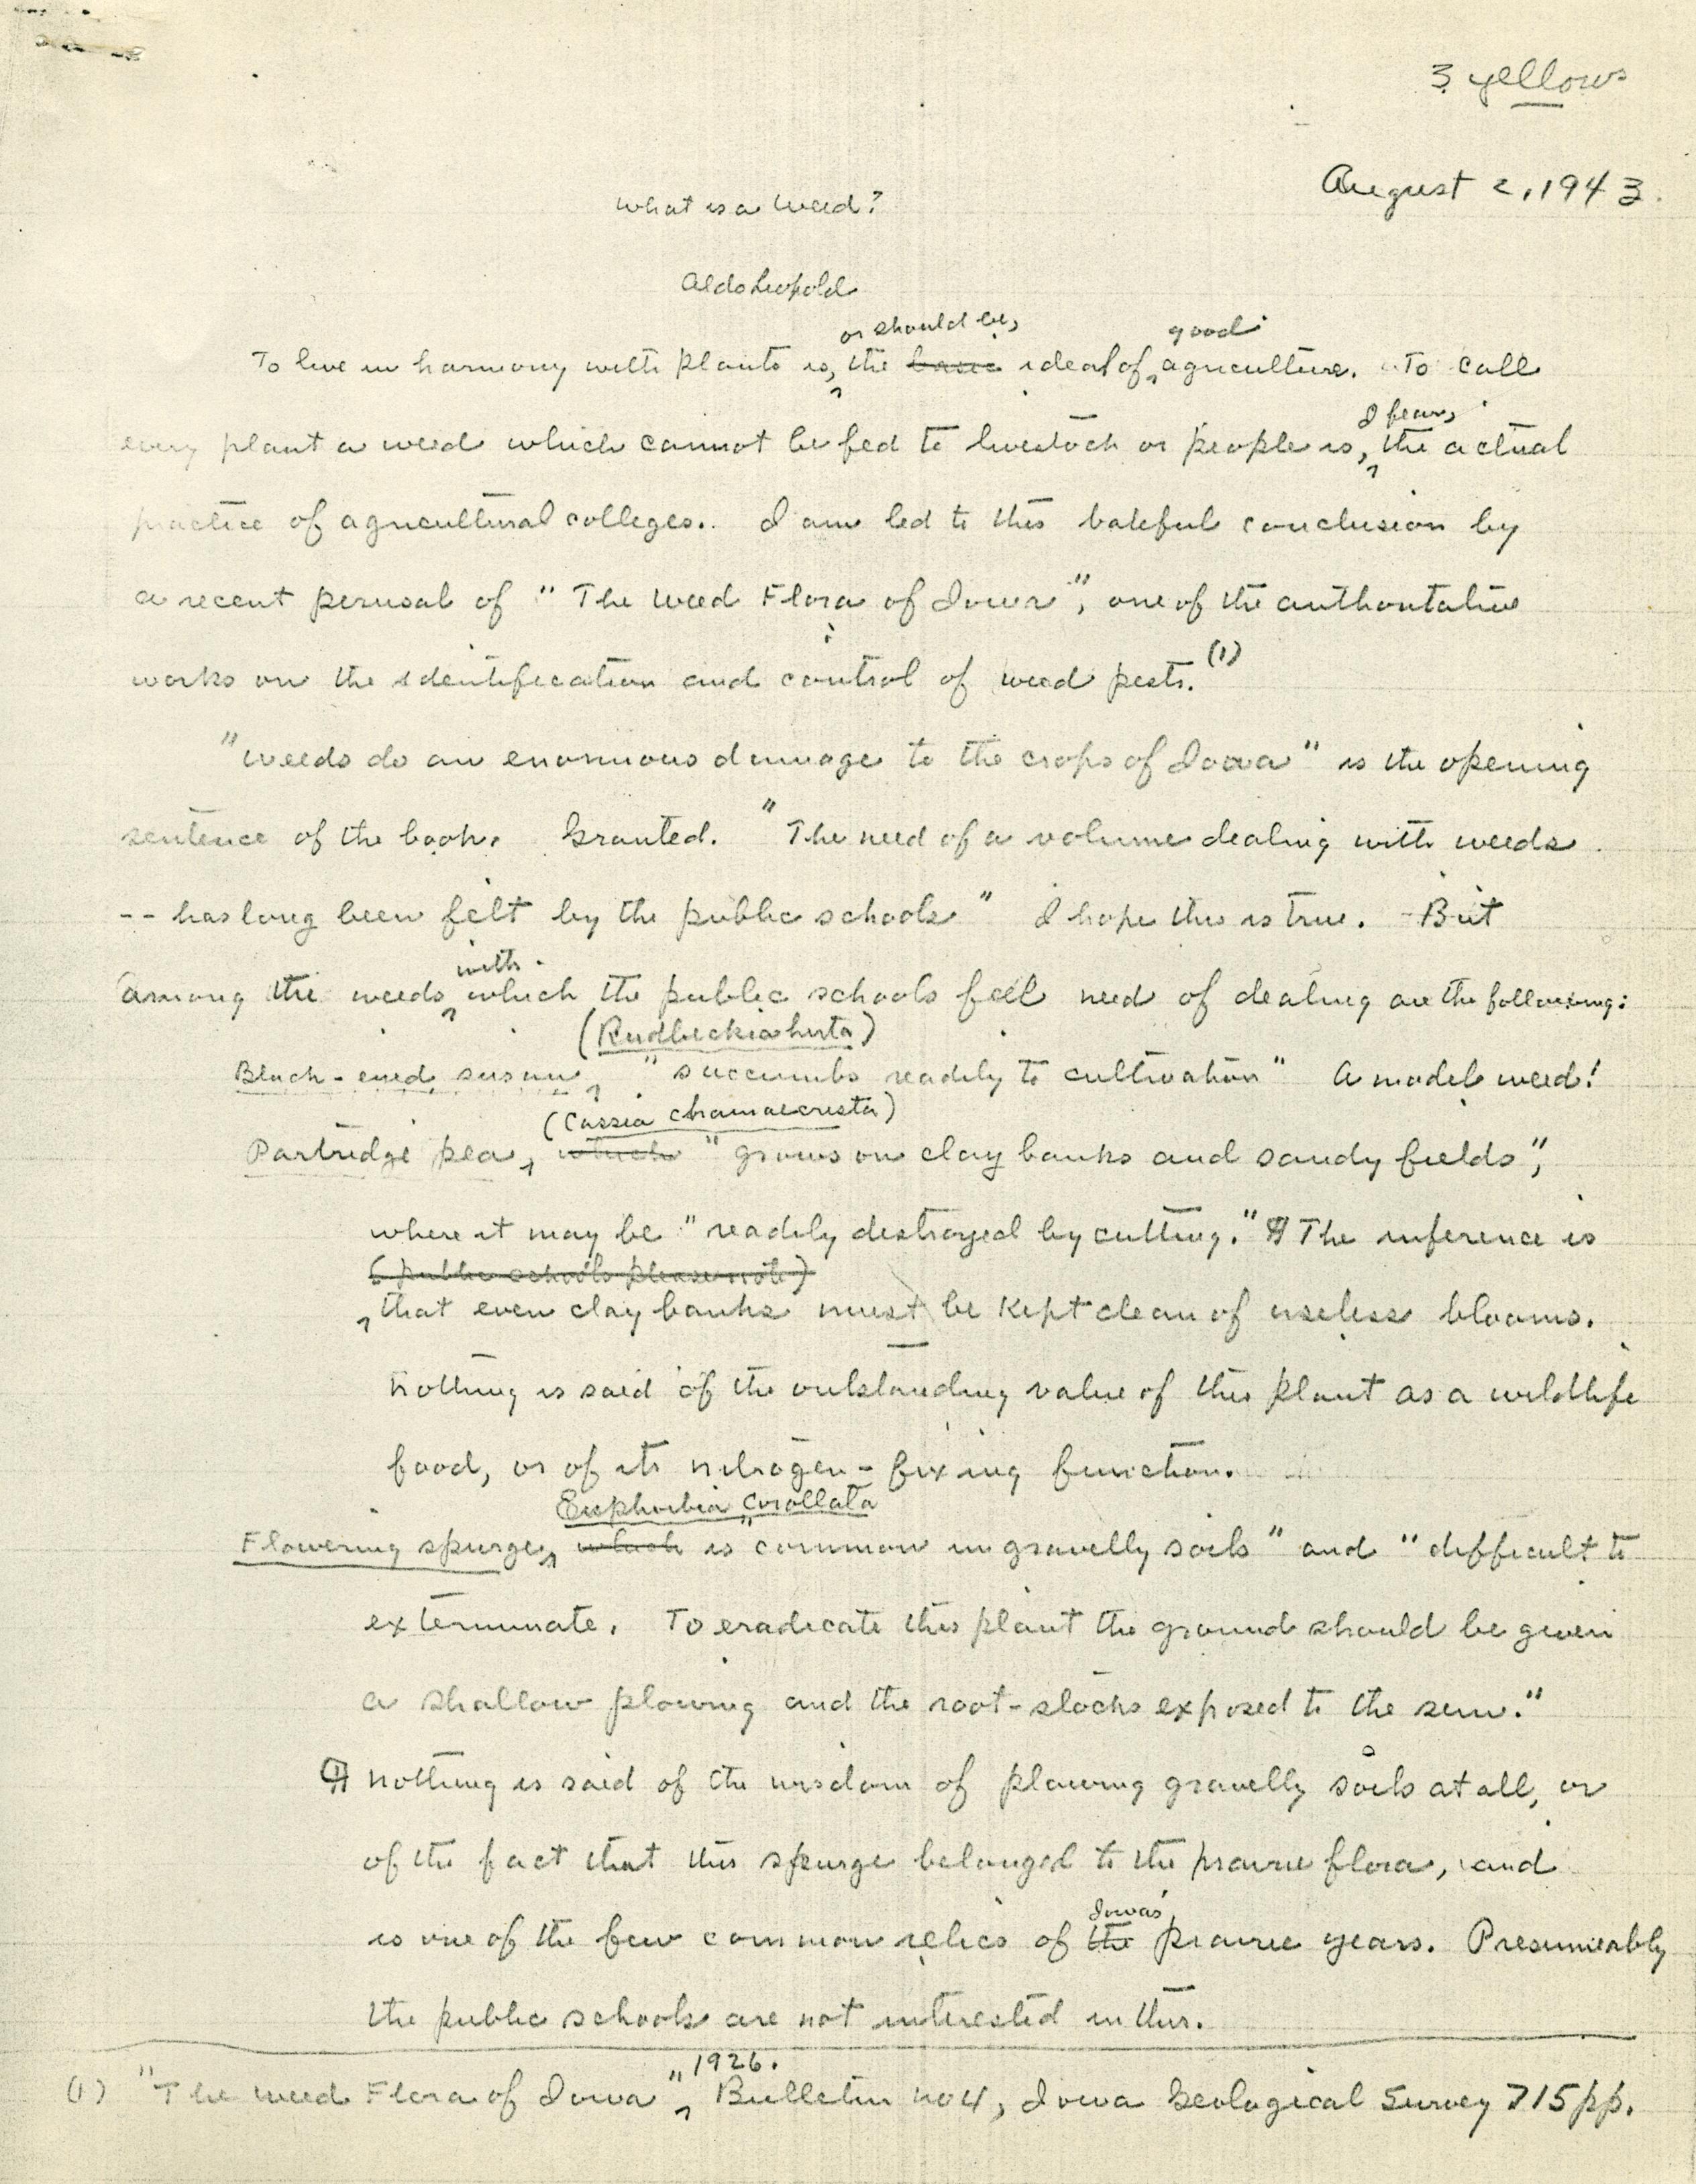 3 yellows
August 2, 1943.
What is a Weed?
Aldo Leopold
or should be, good
To live in harmony with plants is, the basic ideal of agriculture. To call
I fear,
every plant a weed which cannot be fed to livestock or people is, the actual
practice of agricultural colleges. I am led to this baleful conclusion by
a recent perusal of "The Weed Flora of Iowa", one of the authoritative
works on the identification and control of weed pests.(1)
"Weeds do an enormous damage to the crops of Iowa" is the opening
sentence of the book. Granted. "The need of a volume dealing with weeds
-- has long been felt by the public schools" I hope this is true. But
with
among the weeds which the public schools feel need of dealing are the following:
(Rudbeckia hirta)
Black-eyed susan, "succumbs readily to cultivation" A model weed!
(Cassia chamaecrista)
Partridge pea, which "grows on clay banks and sandy fields",
where it may be "readily destroyed by cutting." ¶ The inference is
(public schools please note)
that even clay banks must be kept clean of useless blooms.
Nothing is said of the outstanding value of this plant as a wildlife
food, or of its nitrogen-fixing function.
Euphorbia corollata
Flowering spurge, which is "common in gravelly soils" and "difficult to
exterminate. To eradicate this plant the ground should be given
a shallow plowing and the root-stocks exposed to the sun."
¶ Nothing is said of the wisdom of plowing gravelly soils at all, or
of the fact that this spurge belonged to the prairie flora, and
Iowa's
is one of the few common relics of the prairie years. Presumeably
the public schools are not interested in this.
1926.
(1) "The Weed Flora of Iowa", Bulletin no 4, Iowa Geological Survey 715 pp.